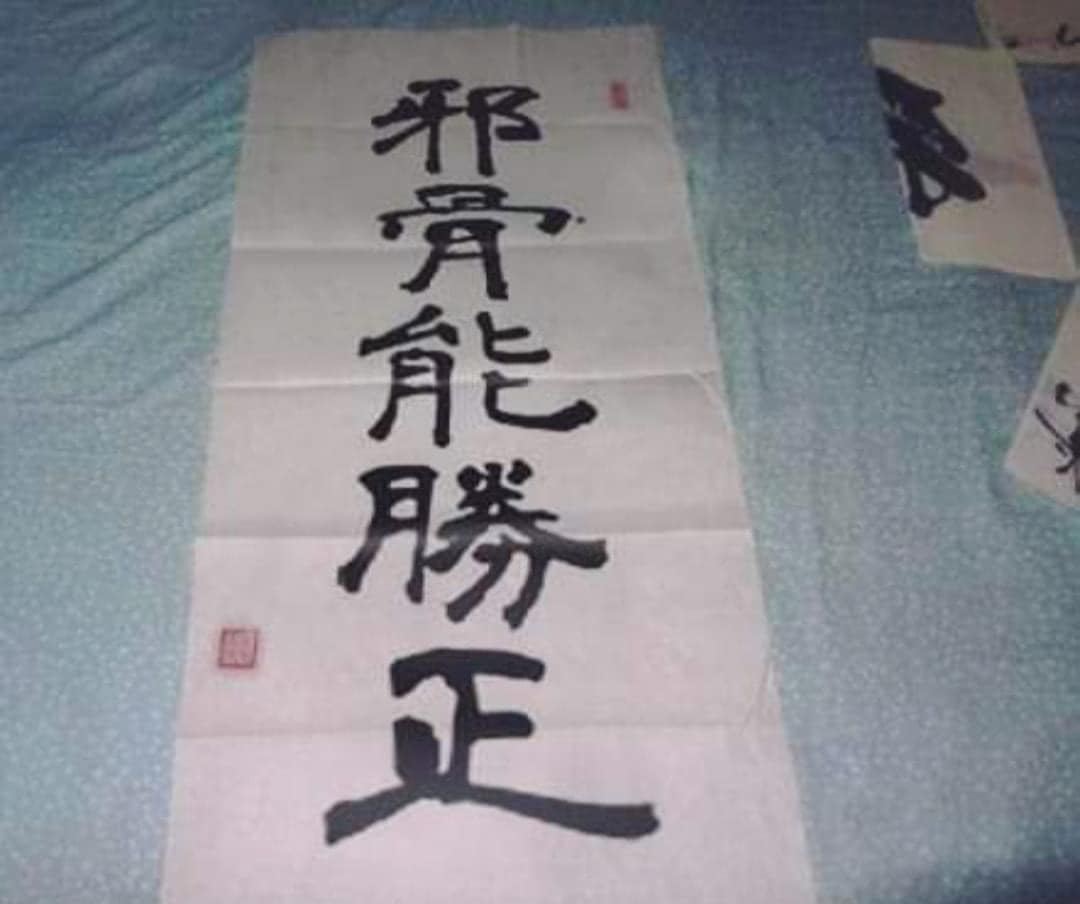 邪骨能勝正